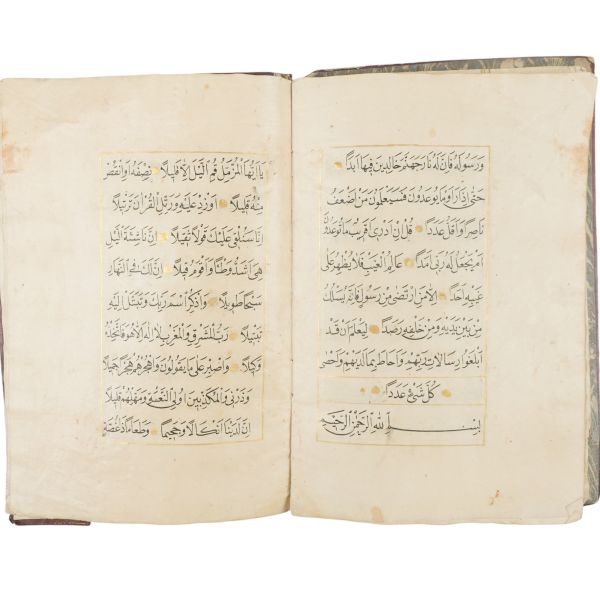 وَرَسُولَهُ فَإِنَّ لَهُ نَارَ جَهَنَّمَ خَالِدِينَ فِيهَا أَبَدًا
حَتَّى إِذَا رَأَوْا مَا يُوعَدُونَ فَسَيَعْلَمُونَ مَنْ أَضْعَفُ
نَاصِرًا وَأَقَلُّ عَدَدًا قُلْ إِنْ أَدْرِي أَقَرِيبٌ مَا تُوعَدُونَ
أَمْ يَجْعَلُ لَهُ رَبِّي أَمَدًا عَالِمُ الْغَيْبِ فَلَا يُظْهِرُ عَلَى
غَيْبِهِ أَحَدًا إِلَّا مَنِ ارْتَضَى مِنْ رَسُولٍ فَإِنَّهُ يَسْلُكُ
مِنْ بَيْنِ يَدَيْهِ وَمِنْ خَلْفِهِ رَصَدًا لِيَعْلَمَ أَنْ قَدْ
أَبْلَغُوا رِسَالَاتِ رَبِّهِمْ وَأَحَاطَ بِمَا لَدَيْهِمْ وَأَحْصَى
كُلَّ شَيْءٍ عَدَدًا
بِسْمِ اللَّهِ الرَّحْمَنِ الرَّحِيمِ
يَا أَيُّهَا الْمُزَّمِّلُ قُمِ اللَّيْلَ إِلَّا قَلِيلًا نِصْفَهُ أَوِ انْقُصْ
مِنْهُ قَلِيلًا أَوْ زِدْ عَلَيْهِ وَرَتِّلِ الْقُرْآنَ تَرْتِيلًا
إِنَّا سَنُلْقِي عَلَيْكَ قَوْلًا ثَقِيلًا إِنَّ نَاشِئَةَ اللَّيْلِ
هِيَ أَشَدُّ وَطْئًا وَأَقْوَمُ قِيلًا إِنَّ لَكَ فِي النَّهَارِ
سَبْحًا طَوِيلًا وَاذْكُرِ اسْمَ رَبِّكَ وَتَبَتَّلْ إِلَيْهِ
تَبْتِيلًا رَبُّ الْمَشْرِقِ وَالْمَغْرِبِ لَا إِلَهَ إِلَّا هُوَ فَاتَّخِذْهُ
وَكِيلًا وَاصْبِرْ عَلَى مَا يَقُولُونَ وَاهْجُرْهُمْ هَجْرًا جَمِيلًا
وَذَرْنِي وَالْمُكَذِّبِينَ أُولِي النَّعْمَةِ وَمَهِّلْهُمْ قَلِيلًا
إِنَّ لَدَيْنَا أَنْكَالًا وَجَحِيمًا وَطَعَامًا ذَا غُصَّةٍ